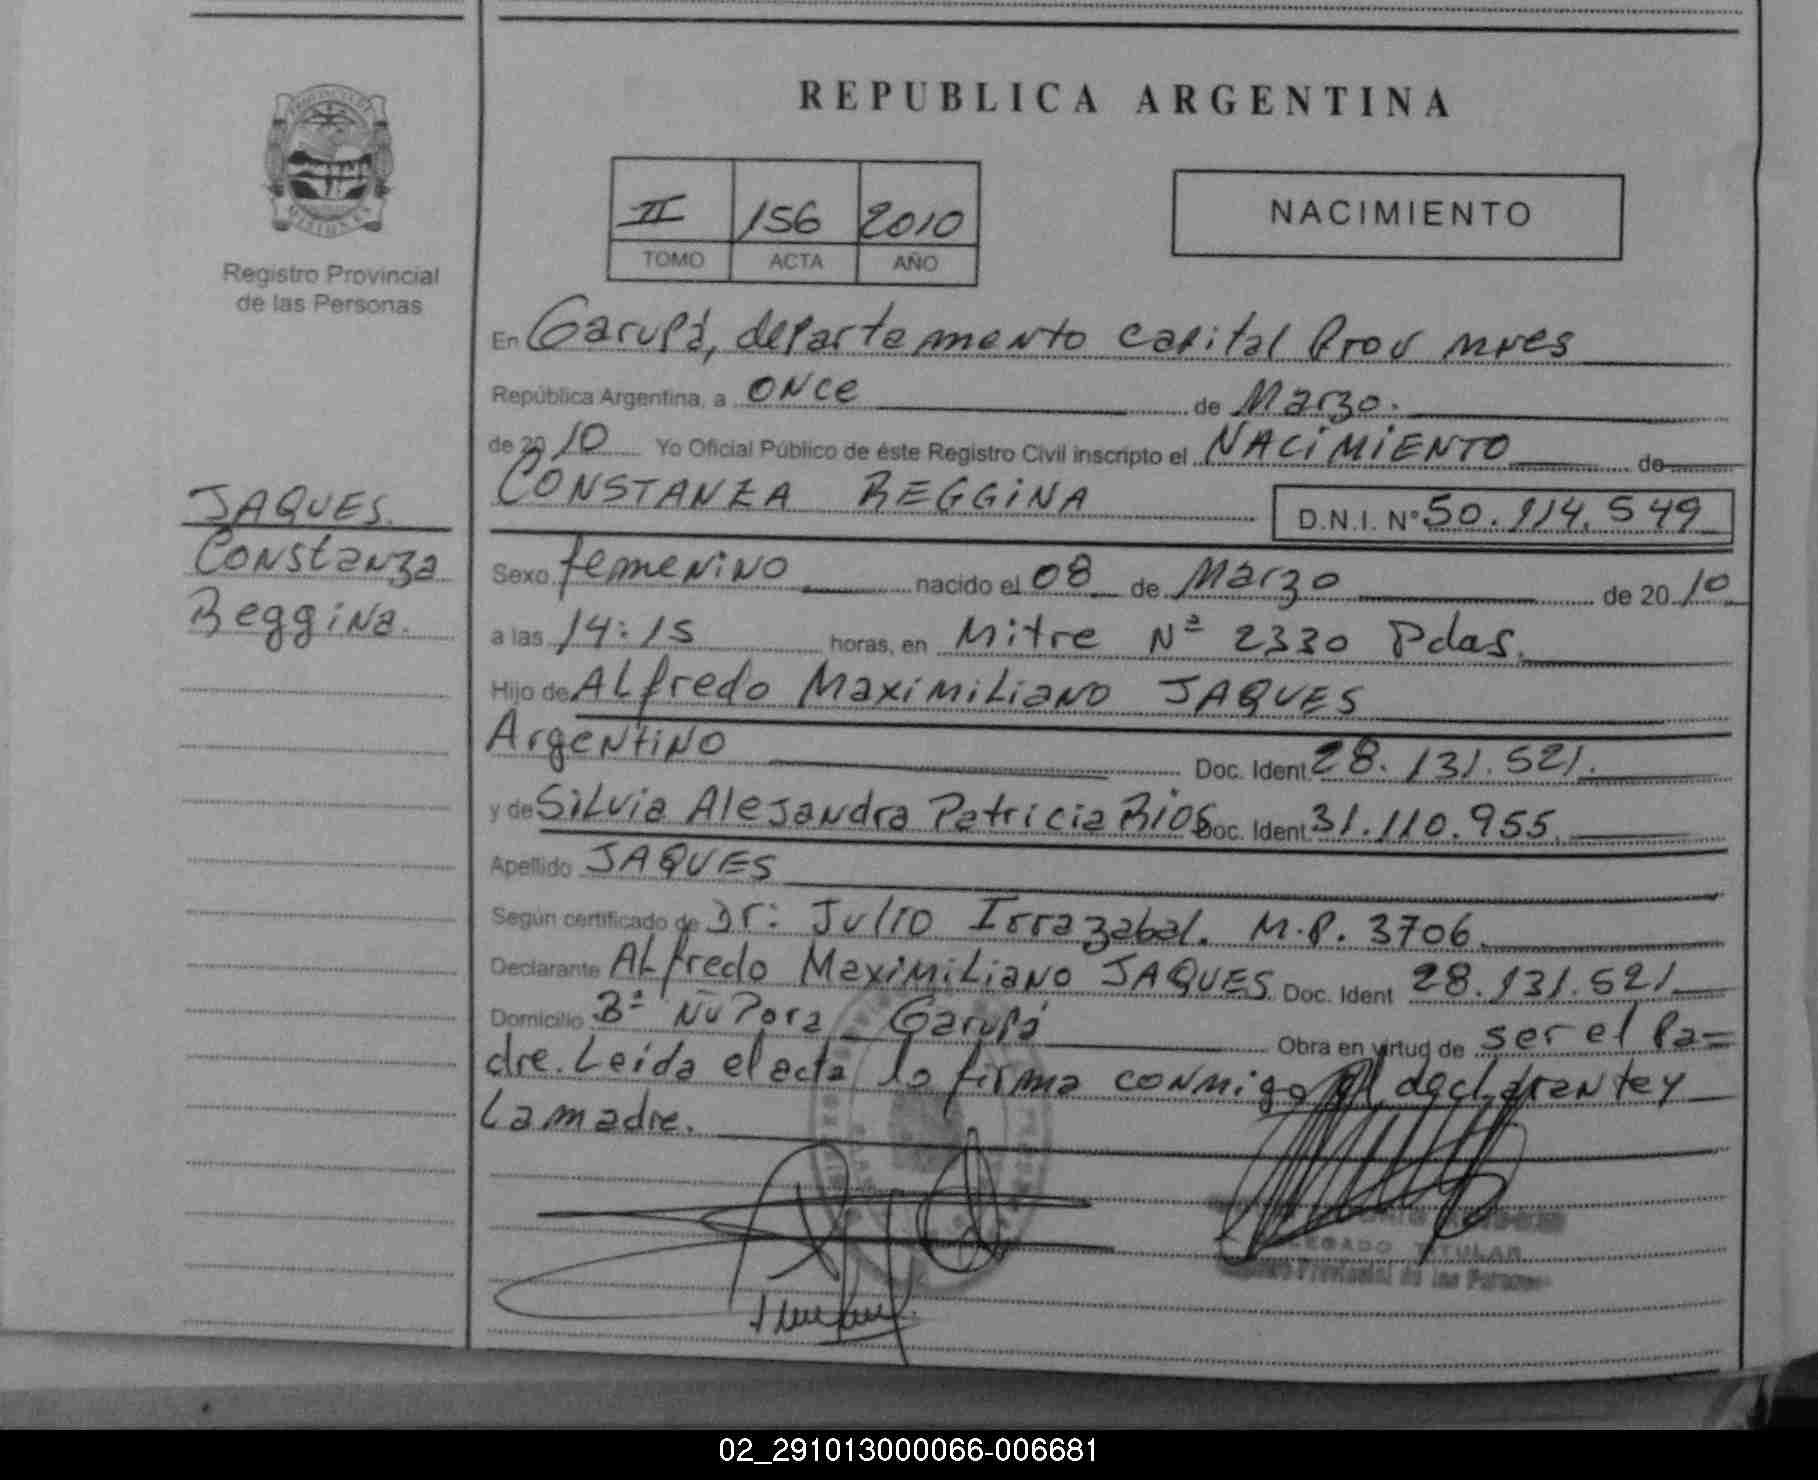 REPUBLICA ARGENTINA
II 156 2010
TOMO ACTA AÑO
NACIMIENTO
Registro Provincial
de las Personas
JAQUES.
Constanza
Beggina.
En Garupá, departamento capital Prov mnes
República Argentina, a once de Marzo.
de 2010 Yo Oficial Público de éste Registro Civil inscripto el NACIMIENTO de
CONSTANZA BEGGINA D.N.I. Nº 50.114.549
Sexo femenino nacido el 08 de Marzo de 2010
a las 14:15 horas, en Mitre Nº 2330 Pdas.
Hijo de Alfredo Maximiliano JAQUES
Argentino Doc. Ident. 28.131.521.
y de Silvia Alejandra Patricia Rios Doc. Ident. 31.110.955
Apellido JAQUES
Según certificado de Dr: Julio Irrazabal. M.P. 3706
Declarante Alfredo Maximiliano JAQUES Doc. Ident 28.131.521
Domicilio Bº Ñu Pora Garupá Obra en virtud de ser el Pa=
dre. Leida el acta lo firma conmigo el declarante y
La madre.
DELEGADO TITULAR
Registro Provincial de las Personas
02_291013000066-006681